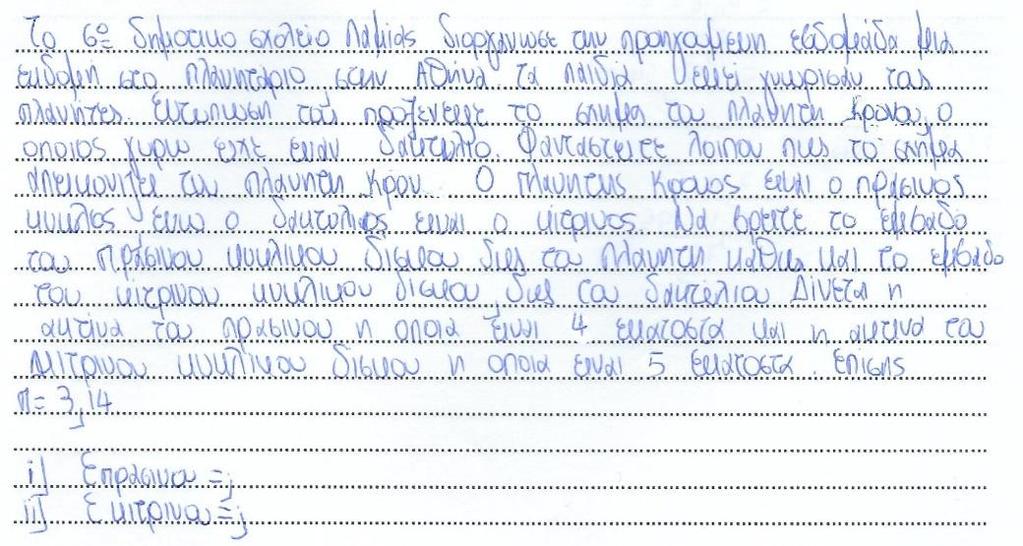 Το 6ο δημοτικο σχολειο Λαμιας διοργανωσε την προηγουμενη εβδομαδα μια
εκδρομη στο πλανηταριο στην Αθηνα. τα παιδια εκει γνωρισαν τους
πλανητες. Εντυπωση τους προξενησε το σχημα του πλανητη Κρονου, ο
οποιος γυρω ειχε εναν δακτυλιο. Φανταστειτε λοιπον πως το σχημα
απεικονιζει τον πλανητη Κρον. Ο πλανητης Κρονος ειναι ο πρασινος
κυκλος ενω ο δακτυλιος ειναι ο κιτρινος. Να βρειτε το εμβαδο
του πρασινου κυκλικου δισκου δης του πλανητη καθως και το εμβαδο
του κιτρινου κυκλικου δισκου δης του δακτυλιου Δινεται η
ακτινα του πρασινου η οποια ειναι 4 εκατοστα και η ακτινα του
κιτρινου κυκλικου δισκου η οποια ειναι 5 εκατοστα. Επισης
π= 3,14
i] Επρασινου =;
ii] Εκιτρινου =;